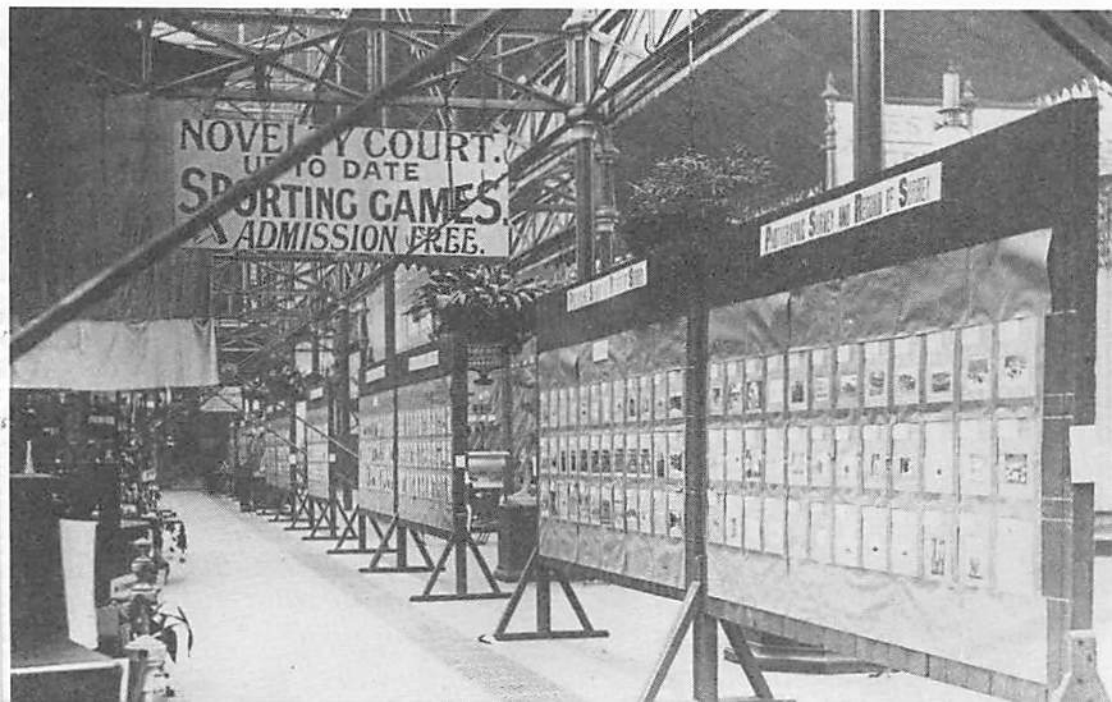 NOVELTY COURT.
UP TO DATE
SPORTING GAMES.
ADMISSION FREE.
PHOTOGRAPHIC SURVEY AND RECORD OF SURREY